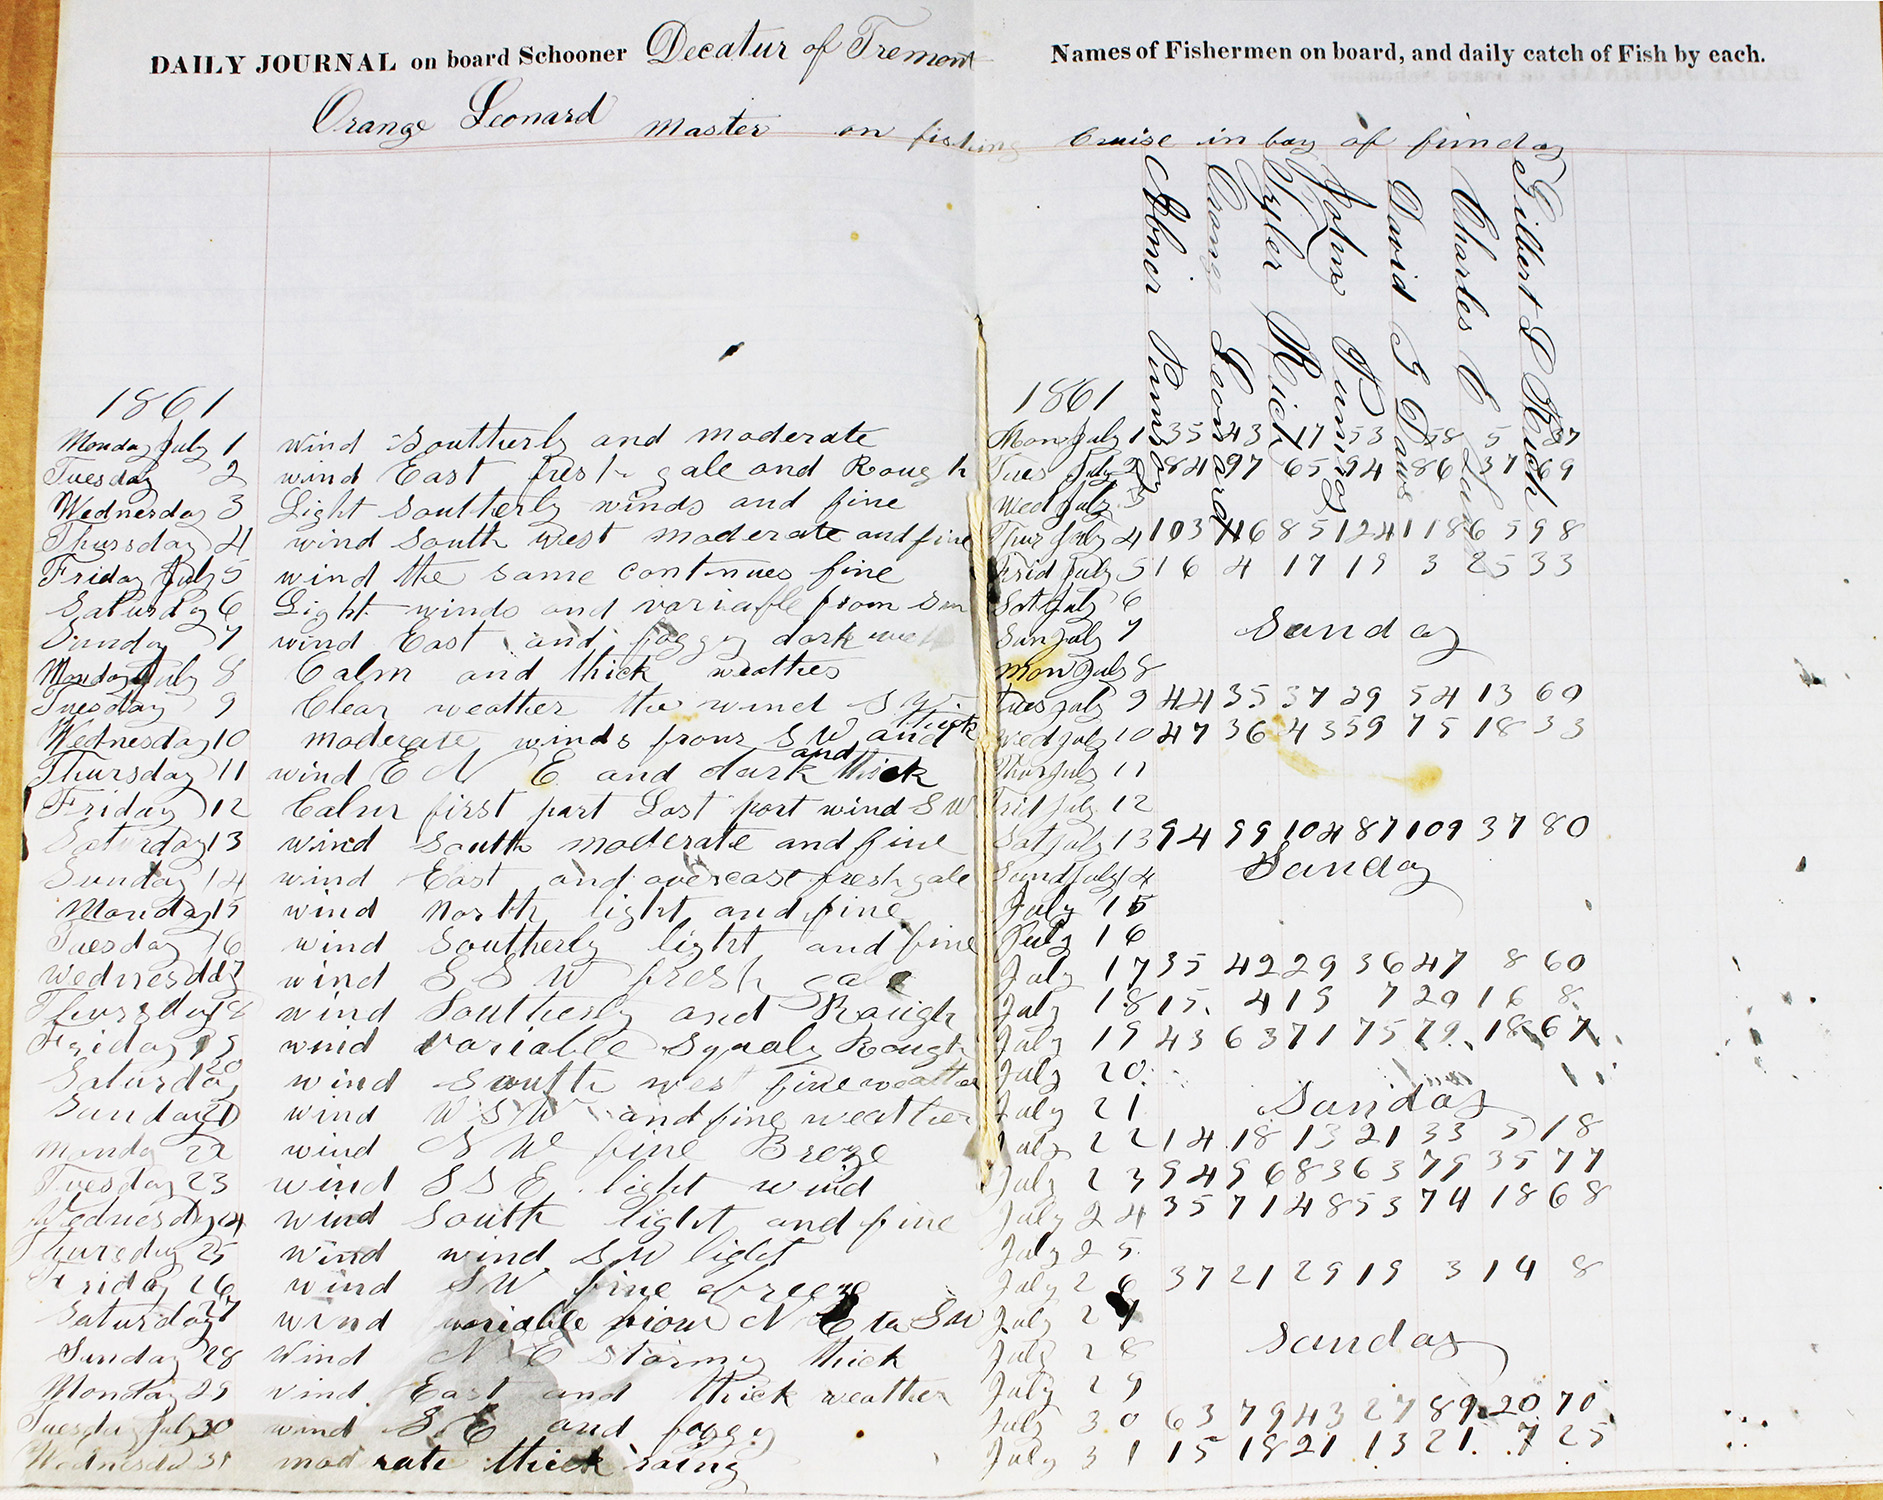 DAILY JOURNAL on board Schooner Decatur of Tremont
Orange Leonard master on fishing
1861
Monday July 1 wind Southerly and moderate
Tuesday 2 wind East fresh gale and Rough
Wednesday 3 Light Southerly winds and fine
Thursday 4 wind South west moderate and fine
Friday July 5 wind the same continues fine
Saturday 6 Light winds and variable from
Sunday 7 wind East and foggy dark
Monday July 8 Calm and thick weather
Tuesday 9 Clear weather the wind S W.
Wednesday 10 moderate winds from S W and thick
Thursday 11 wind E N E and dark and thick
Friday 12 Calm first part Last part wind S W
Saturday 13 wind South moderate and fine
Sunday 14 wind East and overcast fresh gale
Monday 15 wind North light and fine
Tuesday 16 wind Southerly light and fine
Wednesday 17 wind S S W fresh gale
Thursday 18 wind Southerly and Rough
Friday 19 wind variable Squaly Rough
Saturday 20 wind South west fine weather
Sunday 21 wind W S W and fine weather
Monday 22 wind N W fine Breze
Tuesday 23 wind S S E light wind
Wednesday 24 wind South light and fine
Thursday 25 wind wind SW light
Friday 26 wind SW fine breeze
Saturday 27 wind variable from N E to SW
Sunday 28 Wind N E stormy thick
Monday 29 wind East and thick weather
Tuesday July 30 wind S E and foggy
Wednesda 31 moderate thick rainy
Names of Fishermen on board, and daily catch of Fish by each.
Cruise in bay of funday
Abner Pumroy
Orange Leonard
Tyler Rich
John Pumroy
David G Daws
Charles C
Gilbert L Rich
1861
Mon July 1 35 43 47 53 58 5 37
Tues July 2 84 97 65 94 86 37 69
Wed July 3
Thur July 4 103 116 85 124 118 65 98
Frid July 5 16 4 17 19 3 25 33
Sat July 6
Sun July 7 Sunday
mon July 8
Tues July 9 44 35 37 29 54 13 60
Wed July 10 47 36 43 59 75 18 33
Thur July 11
Frid July 12
Sat July 13 94 99 104 87 109 37 80
Sund July 14 Sunday
July 15
July 16
July 17 35 42 29 36 47 8 60
July 18 15 4 19 7 20 16 8
July 19 43 63 71 75 79 18 67
July 20
July 21 Sunday
July 22 14 18 13 21 33 5 18
July 23 94 96 83 63 79 35 77
July 24 35 71 48 53 74 18 68
July 25
July 26 37 21 29 19 3 14 8
July 27
July 28 Sunday
July 29
July 30 63 79 43 27 89 20 70
July 31 15 18 21 13 21 7 25